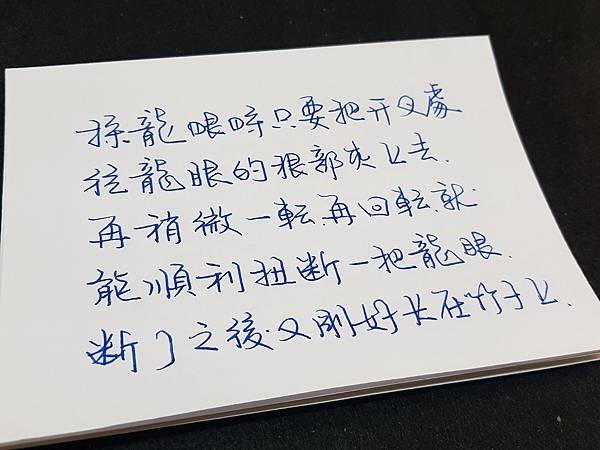 採龍眼時只要把开叉處
往龍眼的根部夾上去.
再稍微一転.再回転.就
能順利扭断一把龍眼.
断了之後.又剛好卡在竹子上.